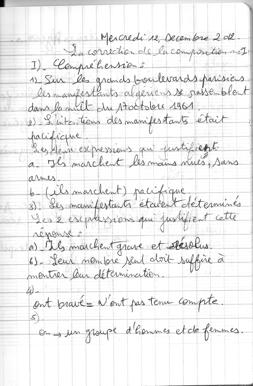 Mercredi 12, Decembre 202.
La correction de la composition n°1
I). Compréhension :
1). Sur les grands boulevards parisiens
les manifestants algériens se rassemblent
dans la nuit du 17 octobre 1961.
2). L'intentions des manifestants était
pacifique.
Les deux expressions qui justifient
a. Ils marchent les mains nues, sans
armes.
b- (ils marchent) pacifique.
3). Les manifestants étaient déterminés
Les 2 expressions qui justifient cette
réponse :
a). Ils marchent grave et résolus.
b). Leur nombre seul doit suffire à
montrer leur détermination.
4).
ont bravé = N'ont pas tenu compte.
5).
on → un groupe d'hommes et de femmes.